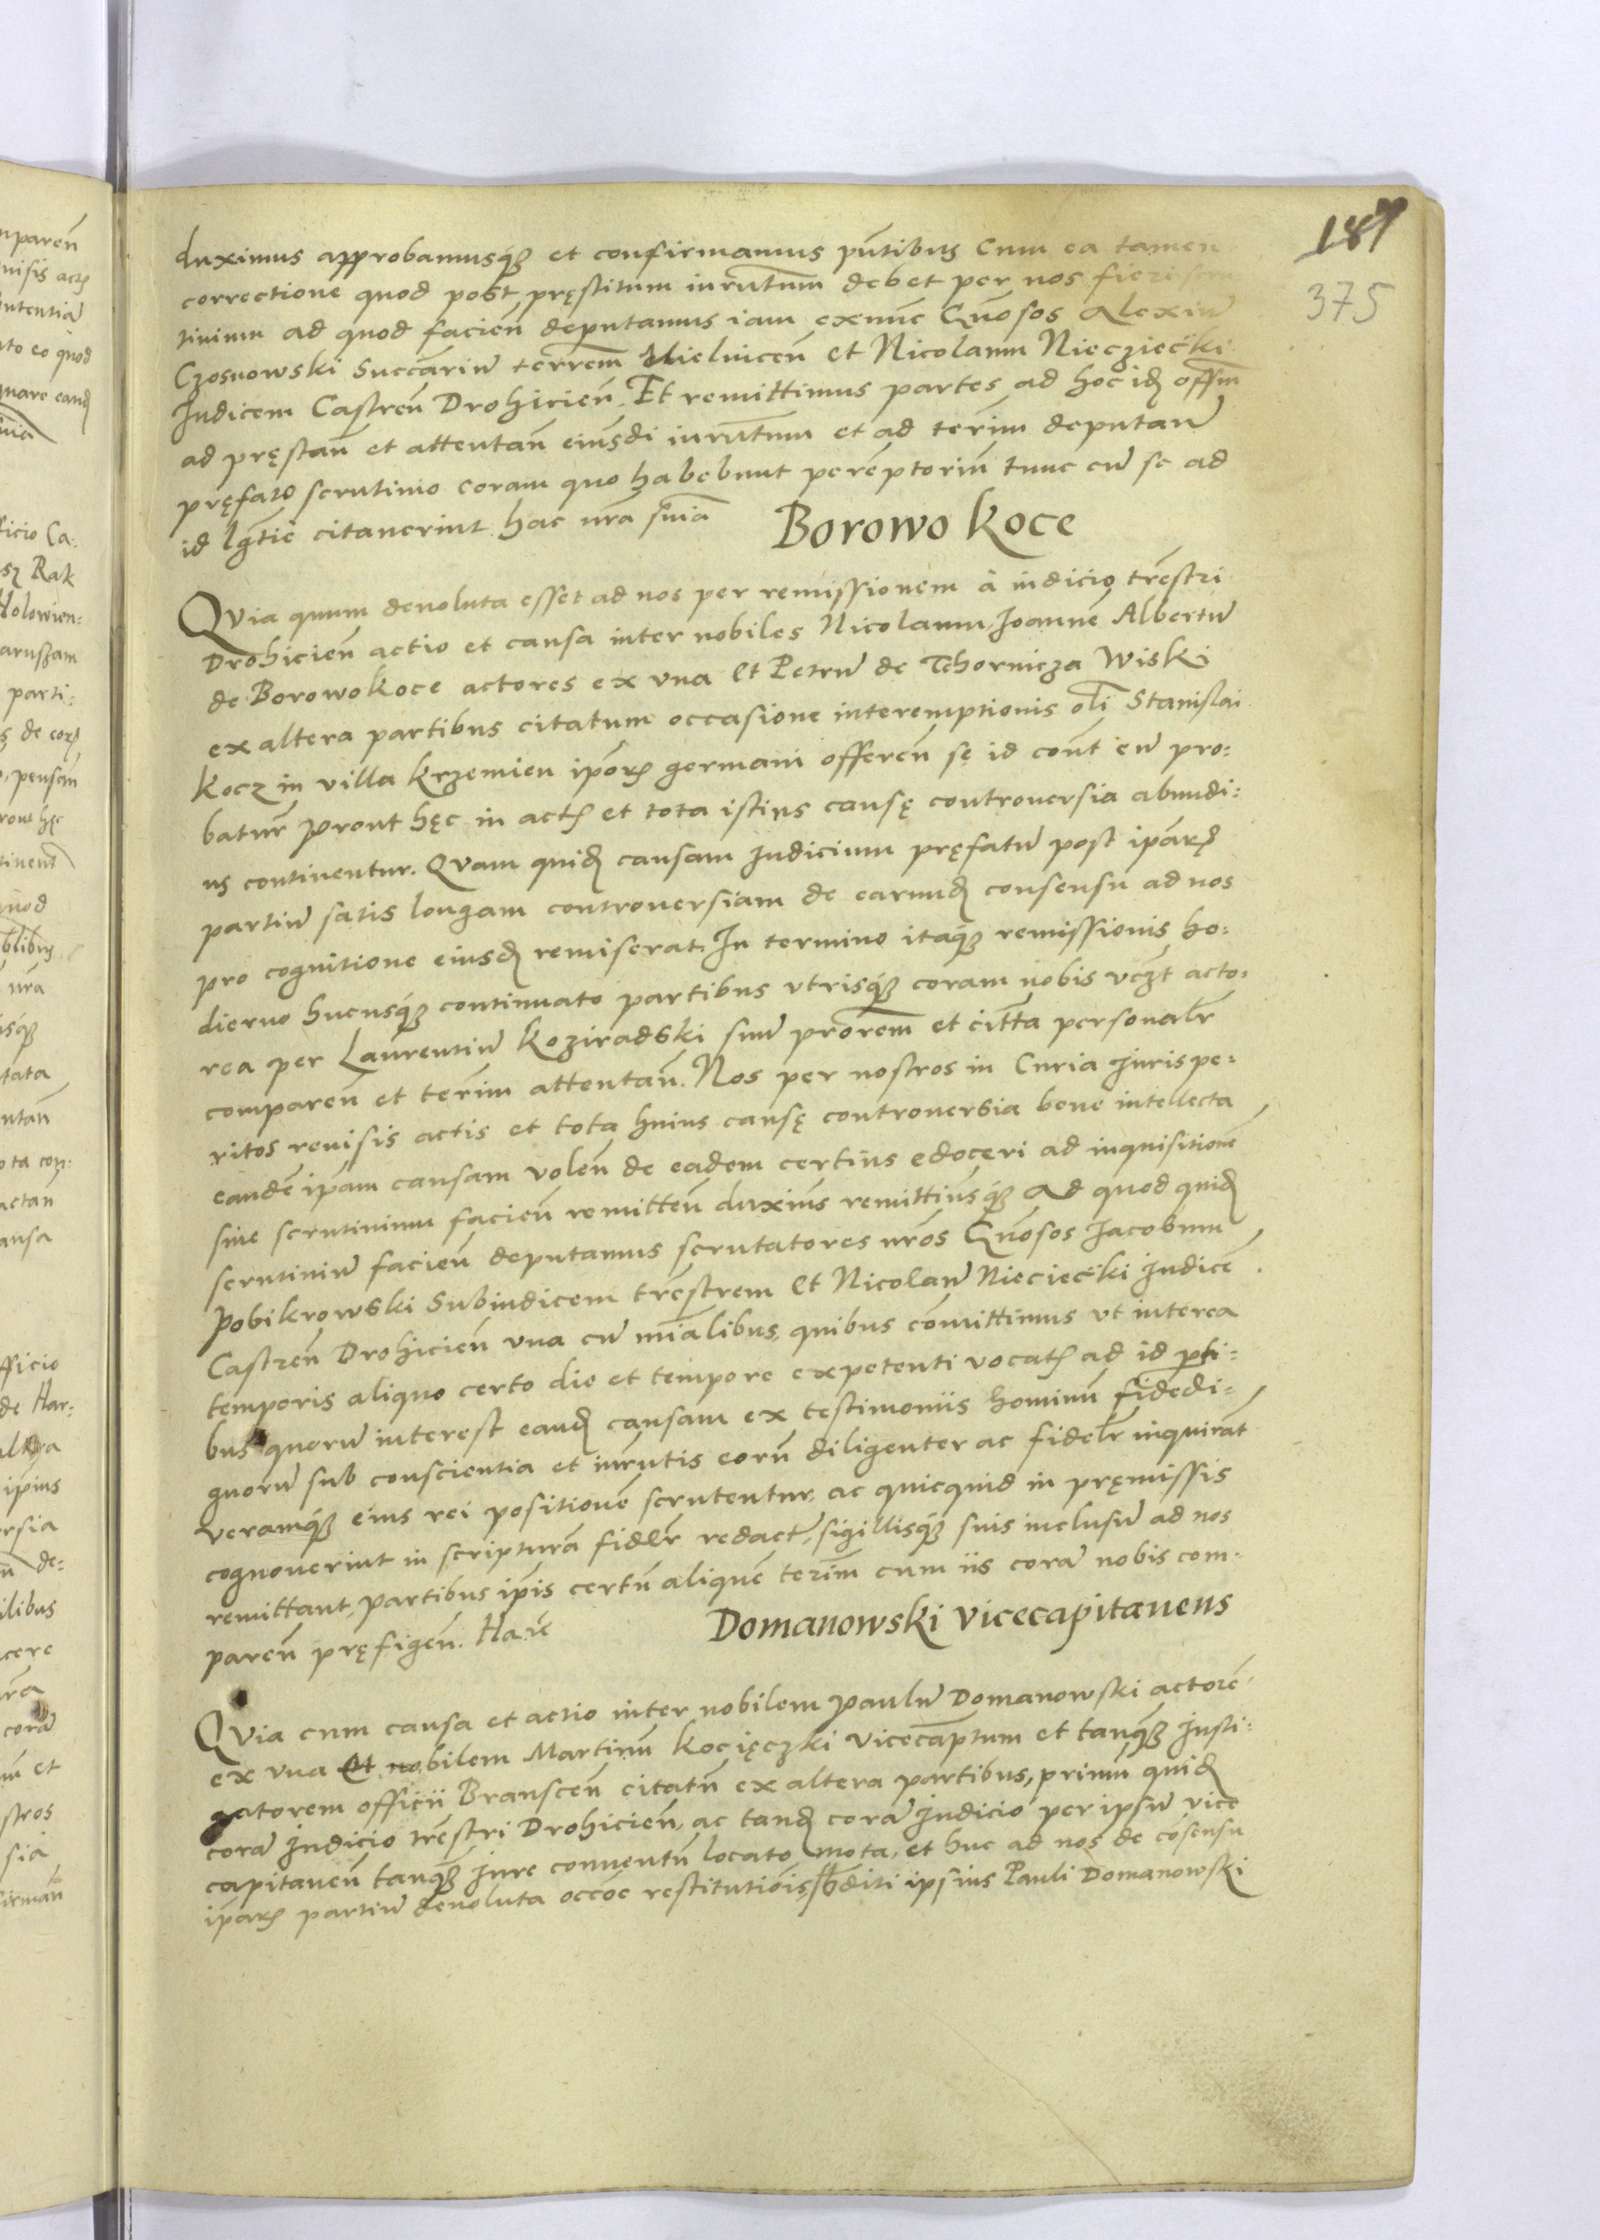 187
375
duximus approbamusq₃ et confirmamus pn̄tibus Cum ea tamen
correctione quod post pręstitum iurn̄tum debet per nos fieri scru
tinium ad quod facien̄ deputamus iam exnunc Gn̄osos Alexiu̅
Czosnowski Succāriu̅ terrem̄ Mielnicen̄ et Nicolaum Niecziećki
Judicem Castren̄ Drohicien̄. Et remittimus partes ad hoc id₃ offm̄
ad pręstan̄ et attentan̄ eiusdi iurn̄tum et ad term̄ deputan̄
pręfato scrutinio coram quo habebunt peremptoriu̅ tunc cu̅ se ad
id lgt̄ie citauerint hac nr̄a sn̄ia
Borowo Koce
QVia quum deuoluta esset ad nos per remissionem à iudicio trēstri
Drohicien̄ actio et causa inter nobiles Nicolaum, Joanne̅ Albertu̅
de Borowokoce actores ex vna Et Petru̅ de Tchornicza Wiski
ex altera partibus citatum occasione interemptionis olī Stanislai
Kocz in villa Krzemien ipōr₄ germani offeren̄ se id cont̄ eu̅ pro:
baturr̄ Prout hęc in act₄ et tota istius causę controuersia abundi:
us continentur. Quam quid₃ causam Judicium pręfatu̅ post ipār₄
partiu̅ satis longam controuersiam de earund₃ consensu ad nos
pro cognitione eiusd₃ remiserat. In termino itaq₃ remissionis ho:
dierno hucusq₃ continuato partibus vtrisq₃ coram nobis vcz̄t acto:
rea per Laurentiu̅ Koziradski suu̅ prorem̄ et citt̄a personalr̄
comparen̄ et term̄ attentan̄. Nos per nostros in Curia Jurispe:
ritos reuisis actis et tota huius causę controuersia bene intellecta
eande̅ ipam causam volen̄ de eadem certius edoceri ad inquisitione̅
siue scrutinium facien̄ remitten̄ duxim̄s remittim̄sq₃ Ad quod quid₃
scrutiniu̅ facien̄ deputamus scrutatores nr̄os Gn̄osos Jacobum
Pobikrowski Subiudicem trēstrem Et Nicolau̅ Nieciećki Judice̅
Castren̄ Drohicien̄ vna cu̅ min̄alibus quibus co̅mittimus vt interea
temporis aliquo certo die et tempore expetenti vocat₄ ad id parti:
bus quoru̅ interest eand₃ causam ex testimoniis hominu̅ fidedi:
gnoru̅ sub conscientia et iurn̄tis eoru̅ diligenter ac fidelr̄ inquirāt
veramq₃ eius rei positione̅ scrutentur, ac quicquid in pręmissis
cognouerint in scriptura̅ fidelr̄ redact₄, sigillisq₃ suis inclusu̅ ad nos
remittant, partibus ipīs certu̅ alique̅ term̄ cum iis cora̅ nobis com:
paren̄ pręfigen̄. Har̄
Domanowski Vicecapitaneus
QVia cum causa et actio inter nobilem Paulu̅ Domanowski actore̅
ex vna Et nobilem Martinu̅ Kocięczki Vicecaptum et tanq₃ Justi:
gatorem officii Branscen̄ citatu̅ ex altera partibus, primu̅ quid₃
cora̅ Judicio trēstri Drohicien̄, ac tand₃ cora̅ Judicio per ipsu̅ vice
capitaneu̅ tanq₃ Jure conuentu̅ locato mota, et huc ad nos de co̅sensu
ipar₄ partiu̅ deuoluta occōe restitutionis sbditi ipsius Pauli Domanowski